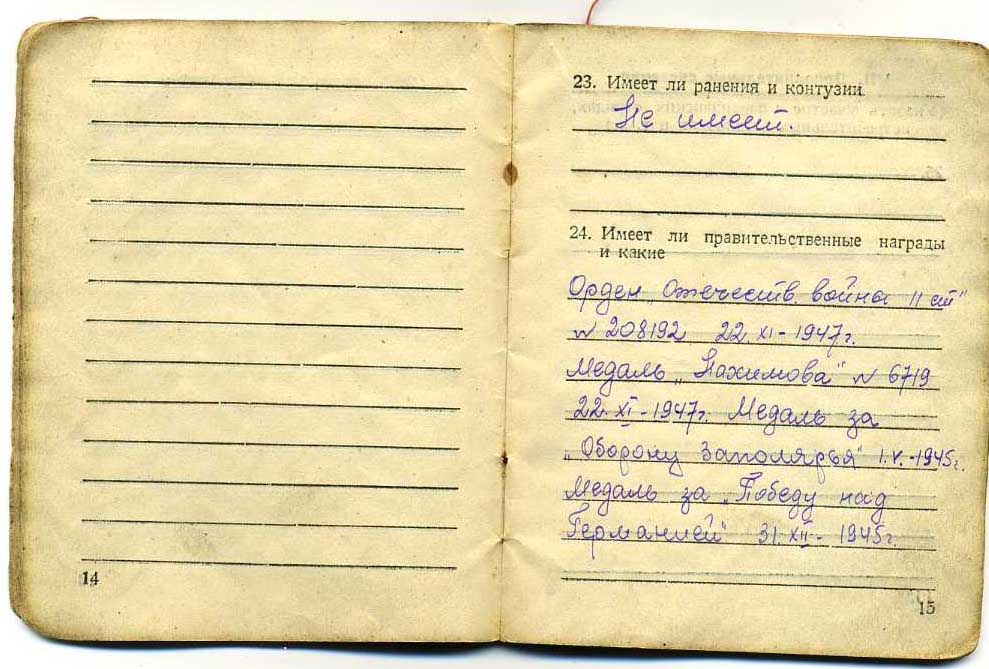 23. Имеет ли ранения и контузии
Не имеет.
24. Имеет ли правительственные награды
и какие
Орден „Отечеств. войны II ст"
№ 208192 22. XI - 1947г.
Медаль „Нахимова" № 6719
22. XI - 1947г. Медаль за
„Оборону Заполярья" 1. V. - 1945г.
Медаль за „Победу над
Германией" 31. XII - 1945г.
14
15